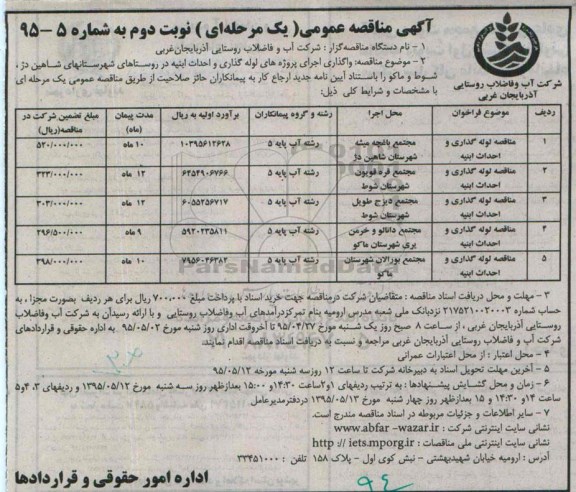 آگهی مناقصه عمومی( یک مرحله‌ای ) نوبت دوم به شماره ۵ –۹۵
۱ – نام دستگاه مناقصه‌گزار : شرکت آب و فاضلاب روستایی آذربایجان‌غربی
۲ – موضوع مناقصه: واگذاری اجرای پروژه های لوله گذاری و احداث ابنیه در روستاهای شهرستانهای شاهین دژ ،
شوط و ماکو را باستناد آیین نامه جدید ارجاع کار به پیمانکاران حائز صلاحیت از طریق مناقصه عمومی یک مرحله ای
با مشخصات و شرایط کلی ذیل:
شرکت آب وفاضلاب روستایی
آذربایجان غربی
ردیف موضوع فراخوان محل اجرا رشته و گروه پیمانکاران برآورد اولیه به ریال مدت پیمان (ماه) مبلغ تضمین شرکت در مناقصه(ریال)
۱ مناقصه لوله گذاری و احداث ابنیه مجتمع باغچه میشه شهرستان شاهین دژ رشته آب پایه ۵ ۱۰۳۹۵۶۱۲۶۲۸ ۱۰ ماه ۵۲۰/۰۰۰/۰۰۰
۲ مناقصه لوله گذاری و احداث ابنیه مجتمع قره قویون شهرستان شوط رشته آب پایه ۵ ۶۴۵۴۹۰۶۷۶۶ ۱۲ ماه ۳۲۳/۰۰۰/۰۰۰
۳ مناقصه لوله گذاری و احداث ابنیه مجتمع دیزج طویل شهرستان شوط رشته آب پایه ۵ ۶۰۵۵۲۵۶۷۱۷ ۱۲ ماه ۳۰۳/۰۰۰/۰۰۰
۴ مناقصه لوله گذاری و احداث ابنیه مجتمع دانالو و خرمن یری شهرستان ماکو رشته آب پایه ۵ ۵۹۲۰۲۳۵۸۱۱ ۹ ماه ۲۹۶/۵۰۰/۰۰۰
۵ مناقصه لوله گذاری و احداث ابنیه مجتمع بورالان شهرستان ماکو رشته آب پایه ۵ ۷۹۵۶۰۴۶۳۸۲ ۱۰ ماه ۳۹۸/۰۰۰/۰۰۰
۳ – مهلت و محل دریافت اسناد مناقصه : متقاضیان شرکت درمناقصه جهت خرید اسناد با پرداخت مبلغ ۷۰۰،۰۰۰ ریال برای هر ردیف بصورت مجزا، به
حساب شماره ۲۱۷۵۲۱۰۰۲۰۰۰۳ نزدبانک ملی شعبه مدرس ارومیه بنام تمرکزدرآمدهای آب وفاضلاب روستایی و با ارائه رسیدآن به شرکت آب وفاضلاب
روستایی آذربایجان غربی ، از ساعت ۸ صبح روز یک شنبه مورخ ۹۵/۰۴/۲۷ تا آخروقت اداری روز شنبه مورخ ۹۵/۰۵/۰۲ به اداره حقوقی و قراردادهای
شرکت آب و فاضلاب روستایی آذربایجان غربی مراجعه و نسبت به دریافت اسناد مناقصه اقدام نمایند.
۴ – محل اعتبار : از محل اعتبارات عمرانی
۵ – آخرین مهلت تحویل اسناد به دبیرخانه شرکت تا ساعت ۱۲ روزسه شنبه مورخه ۹۵/۰۵/۱۲
۶ – زمان و محل گشایش پیشنهادها : به ترتیب ردیفهای ۱و۲ساعت ۱۴:۳۰و ۱۵:۰۰ بعدازظهر روز سه شنبه مورخ ۱۳۹۵/۰۵/۱۲ و ردیفهای ۳، ۴و۵
ساعت ۱۴و ۱۴:۳۰ و ۱۵ بعدازظهر روز چهار شنبه مورخ ۱۳۹۵/۰۵/۱۳ دردفترمدیرعامل
۷ – سایر اطلاعات و جزئیات مربوطه در اسناد مناقصه مندرج است.
نشانی سایت اینترنتی شرکت : www.abfar –wazar.ir
نشانی سایت اینترنتی ملی مناقصات : http :// iets.mporg.ir
آدرس : ارومیه خیابان شهیدبهشتی – نبش کوی اول – پلاک ۱۵۸ تلفن : ۳۳۴۵۱۰۰۰
اداره امور حقوقی و قراردادها
ParsNamadData